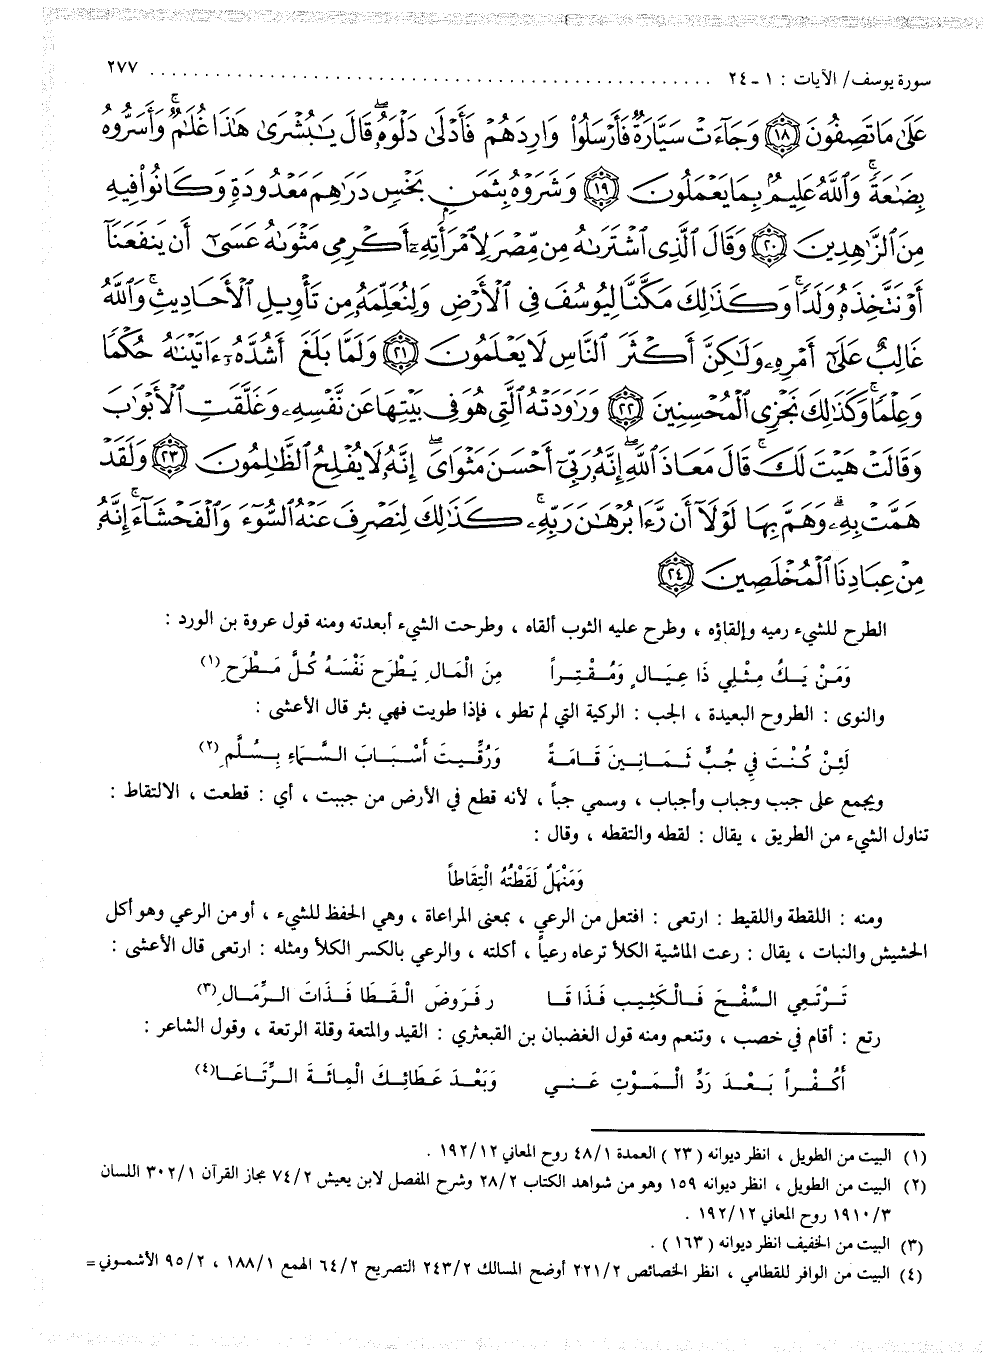 سورة يوسف/ الآيات : ١ - ٢٤ ........................................ ٢٧٧
عَلَىٰ مَا تَصِفُونَ ﴿١٨﴾ وَجَآءَتْ سَيَّارَةٌ فَأَرْسَلُوا۟ وَارِدَهُمْ فَأَدْلَىٰ دَلْوَهُۥ ۖ قَالَ يَٰبُشْرَىٰ هَٰذَا غُلَٰمٌ ۚ وَأَسَرُّوهُ
بِضَٰعَةً ۚ وَٱللَّهُ عَلِيمٌۢ بِمَا يَعْمَلُونَ ﴿١٩﴾ وَشَرَوْهُ بِثَمَنٍۭ بَخْسٍ دَرَٰهِمَ مَعْدُودَةٍ وَكَانُوا۟ فِيهِ
مِنَ ٱلزَّٰهِدِينَ ﴿٢٠﴾ وَقَالَ ٱلَّذِى ٱشْتَرَىٰهُ مِن مِّصْرَ لِٱمْرَأَتِهِۦٓ أَكْرِمِى مَثْوَىٰهُ عَسَىٰٓ أَن يَنفَعَنَآ
أَوْ نَتَّخِذَهُۥ وَلَدًا ۚ وَكَذَٰلِكَ مَكَّنَّا لِيُوسُفَ فِى ٱلْأَرْضِ وَلِنُعَلِّمَهُۥ مِن تَأْوِيلِ ٱلْأَحَادِيثِ ۚ وَٱللَّهُ
غَالِبٌ عَلَىٰٓ أَمْرِهِۦ وَلَٰكِنَّ أَكْثَرَ ٱلنَّاسِ لَا يَعْلَمُونَ ﴿٢١﴾ وَلَمَّا بَلَغَ أَشُدَّهُۥٓ ءَاتَيْنَٰهُ حُكْمًا
وَعِلْمًا ۚ وَكَذَٰلِكَ نَجْزِى ٱلْمُحْسِنِينَ ﴿٢٢﴾ وَرَٰوَدَتْهُ ٱلَّتِى هُوَ فِى بَيْتِهَا عَن نَّفْسِهِۦ وَغَلَّقَتِ ٱلْأَبْوَٰبَ
وَقَالَتْ هَيْتَ لَكَ ۚ قَالَ مَعَاذَ ٱللَّهِ ۖ إِنَّهُۥ رَبِّىٓ أَحْسَنَ مَثْوَاىَ ۖ إِنَّهُۥ لَا يُفْلِحُ ٱلظَّٰلِمُونَ ﴿٢٣﴾ وَلَقَدْ
هَمَّتْ بِهِۦ ۖ وَهَمَّ بِهَا لَوْلَآ أَن رَّءَا بُرْهَٰنَ رَبِّهِۦ ۚ كَذَٰلِكَ لِنَصْرِفَ عَنْهُ ٱلسُّوٓءَ وَٱلْفَحْشَآءَ ۚ إِنَّهُۥ
مِنْ عِبَادِنَا ٱلْمُخْلَصِينَ ﴿٢٤﴾
الطرح للشيء رميه وإلقاؤه ، وطرح عليه الثوب ألقاه ، وطرحت الشيء أبعدته ومنه قول عروة بن الورد :
وَمَنْ يَكُ مِثْلِي ذَا عِيَالٍ وَمُقْتِراً مِنَ الْمَالِ يَطْرَحْ نَفْسَهُ كُلَّ مَطْرَحِ(١)
والنوى : الطروح البعيدة ، الجب : الركية التي لم تطو ، فإذا طويت فهي بئر قال الأعشى :
لَئِنْ كُنْتَ فِي جُبٍّ ثَمَانِينَ قَامَةً وَرُقِّيتَ أَسْبَابَ السَّمَاءِ بِسُلَّمِ(٢)
ويجمع على جبب وجباب وأجباب ، وسمي جباً ، لأنه قطع في الأرض من جببت ، أي : قطعت ، الالتقاط :
تناول الشيء من الطريق ، يقال : لقطه والتقطه ، وقال :
وَمَنْهَلٌ لَقَطْتُهُ الْتِقَاطاً
ومنه : اللقطة واللقيط : ارتعى : افتعل من الرعي ، بمعنى المراعاة ، وهي الحفظ للشيء ، أو من الرعي وهو أكل
الحشيش والنبات ، يقال : رعت الماشية الكلأ ترعاه رعياً ، أكلته ، والرعي بالكسر الكلأ ومثله : ارتعى قال الأعشى :
تَرْتَعِي السَّفْحَ فَالْكَثِيبَ فَذَا قَا رٍ فَرَوْضَ الْقَطَا فَذَاتَ الرِّمَالِ(٣)
رتع : أقام في خصب ، وتنعم ومنه قول الغضبان بن القبعثري : القيد والمتعة وقلة الرتعة ، وقول الشاعر :
أَكُفْراً بَعْدَ رَدِّ الْمَوْتِ عَنِّي وَبَعْدَ عَطَائِكَ الْمِائَةَ الرِّتَاعَا(٤)
(١) البيت من الطويل ، انظر ديوانه ( ٢٣ ) العمدة ٤٨/١ روح المعاني ١٩٢/١٢ .
(٢) البيت من الطويل ، انظر ديوانه ١٥٩ وهو من شواهد الكتاب ٢٨/٢ وشرح المفصل لابن يعيش ٧٤/٢ مجاز القرآن ٣٠٢/١ اللسان
١٩١٠/٣ روح المعاني ١٩٢/١٢ .
(٣) البيت من الخفيف انظر ديوانه ( ١٦٣ ) .
(٤) البيت من الوافر للقطامي ، انظر الخصائص ٢٢١/٢ أوضح المسالك ٢٤٣/٢ التصريح ٦٤/٢ الهمع ١٨٨/١ ، ٩٥/٢ الأشموني =